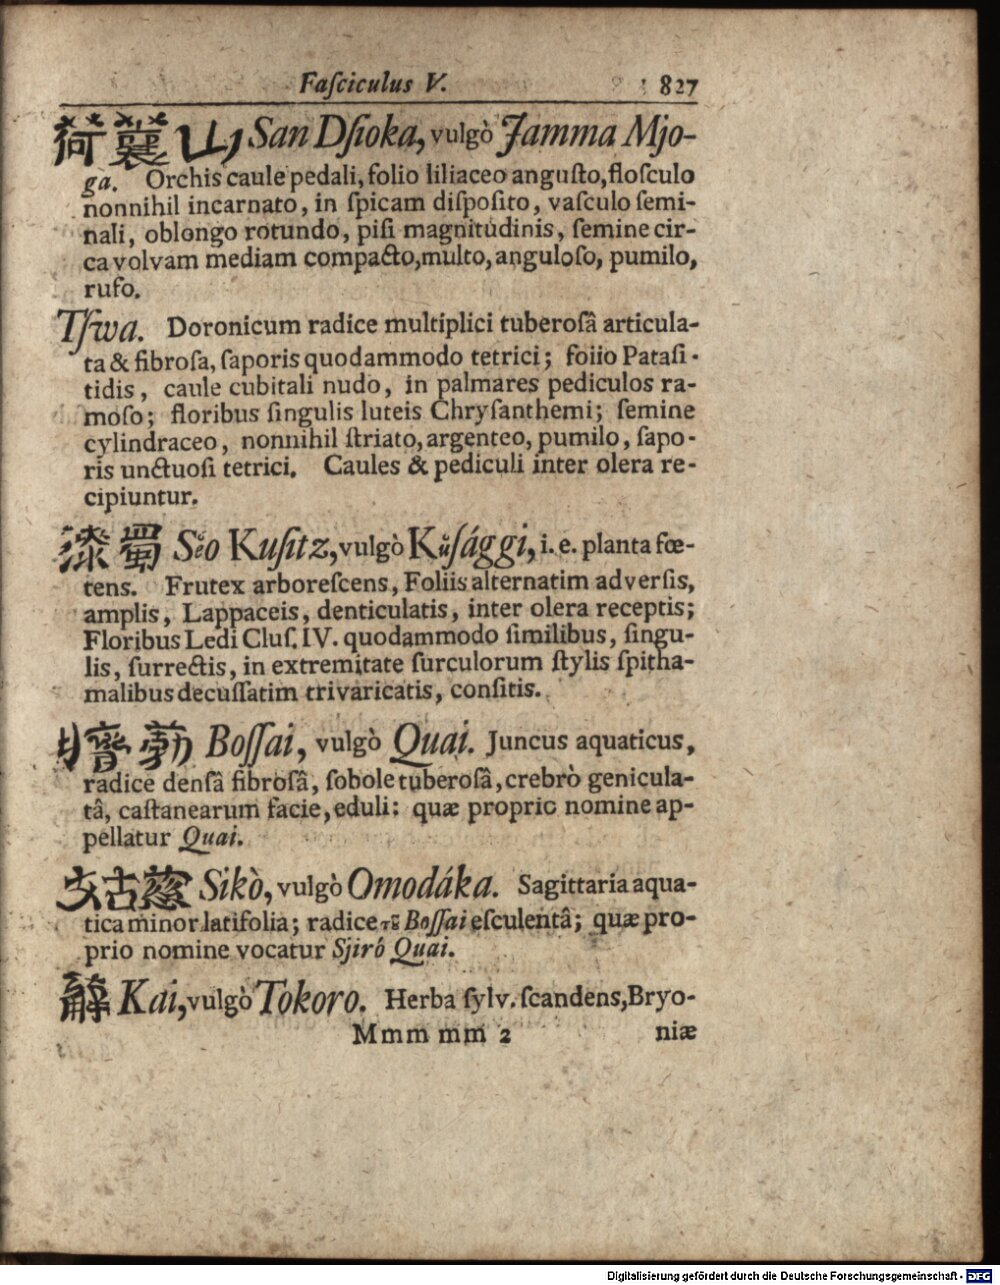 Faſciculus V. 827
荷蘘山 San Dſioka, vulgò Jamma Mjo-
ga. Orchis caule pedali, folio liliaceo anguſto, floſculo
nonnihil incarnato, in ſpicam diſpoſito, vaſculo ſemi-
nali, oblongo rotundo, piſi magnitudinis, ſemine cir-
ca volvam mediam compacto, multo, anguloſo, pumilo,
rufo.
Tſwa. Doronicum radice multiplici tuberoſâ articula-
ta & fibroſa, ſaporis quodammodo tetrici; foiio Pataſi-
tidis, caule cubitali nudo, in palmares pediculos ra-
moſo; floribus ſingulis luteis Chryſanthemi; ſemine
cylindraceo, nonnihil ſtriato, argenteo, pumilo, ſapo-
ris unctuoſi tetrici. Caules & pediculi inter olera re-
cipiuntur.
漆蜀 Sěo Kuſitz, vulgò Kůſággi, i. e. planta fœ-
tens. Frutex arboreſcens, Foliis alternatim adverſis,
amplis, Lappaceis, denticulatis, inter olera receptis;
Floribus Ledi Cluſ. IV. quodammodo ſimilibus, ſingu-
lis, ſurrectis, in extremitate ſurculorum ſtylis ſpitha-
malibus decuſſatim trivaricatis, conſitis.
Boſſai, vulgò Quai. Juncus aquaticus,
radice denſâ fibroſâ, ſobole tuberoſâ, crebrò genicula-
tâ, caſtanearum facie, eduli: quæ proprio nomine ap-
pellatur Quai.
Sikò, vulgò Omodáka. Sagittaria aqua-
tica minor latifolia; radice τȣ͂ Boſſai eſculentâ; quæ pro-
prio nomine vocatur Sjirô Quai.
Kai, vulgò Tokoro. Herba ſylv. ſcandens, Bryo-
Mmm mm 2 niæ
Digitalisierung gefördert durch die Deutsche Forschungsgemeinschaft - DFG